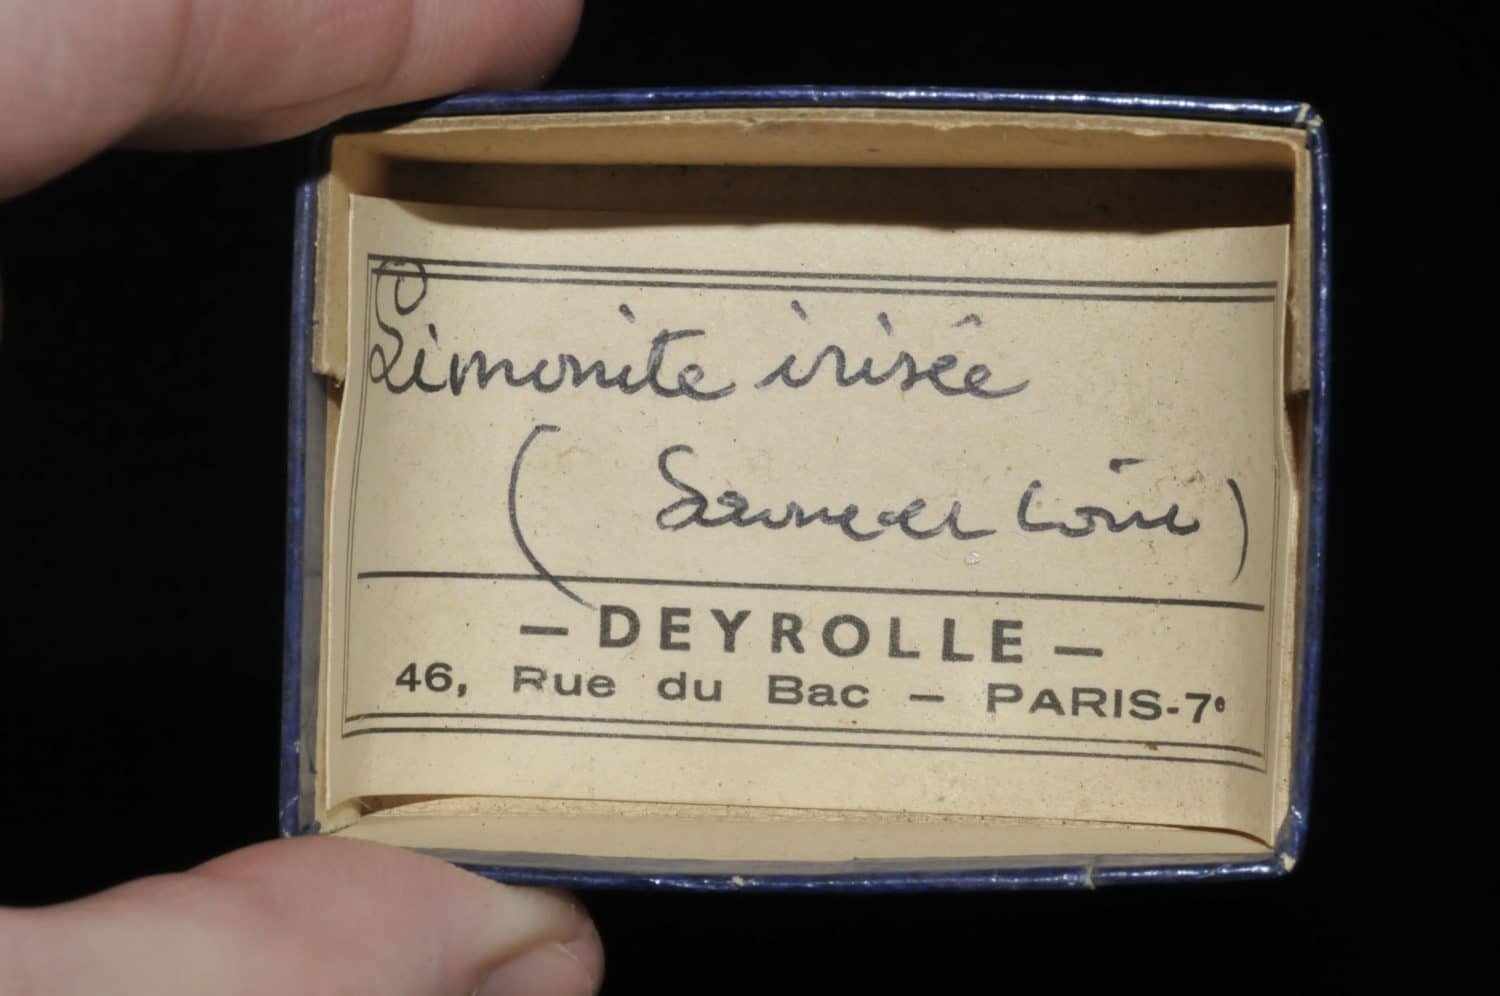 Limonite irisée
(Saone-et Loire)
— DEYROLLE —
46, Rue du Bac — PARIS-7e